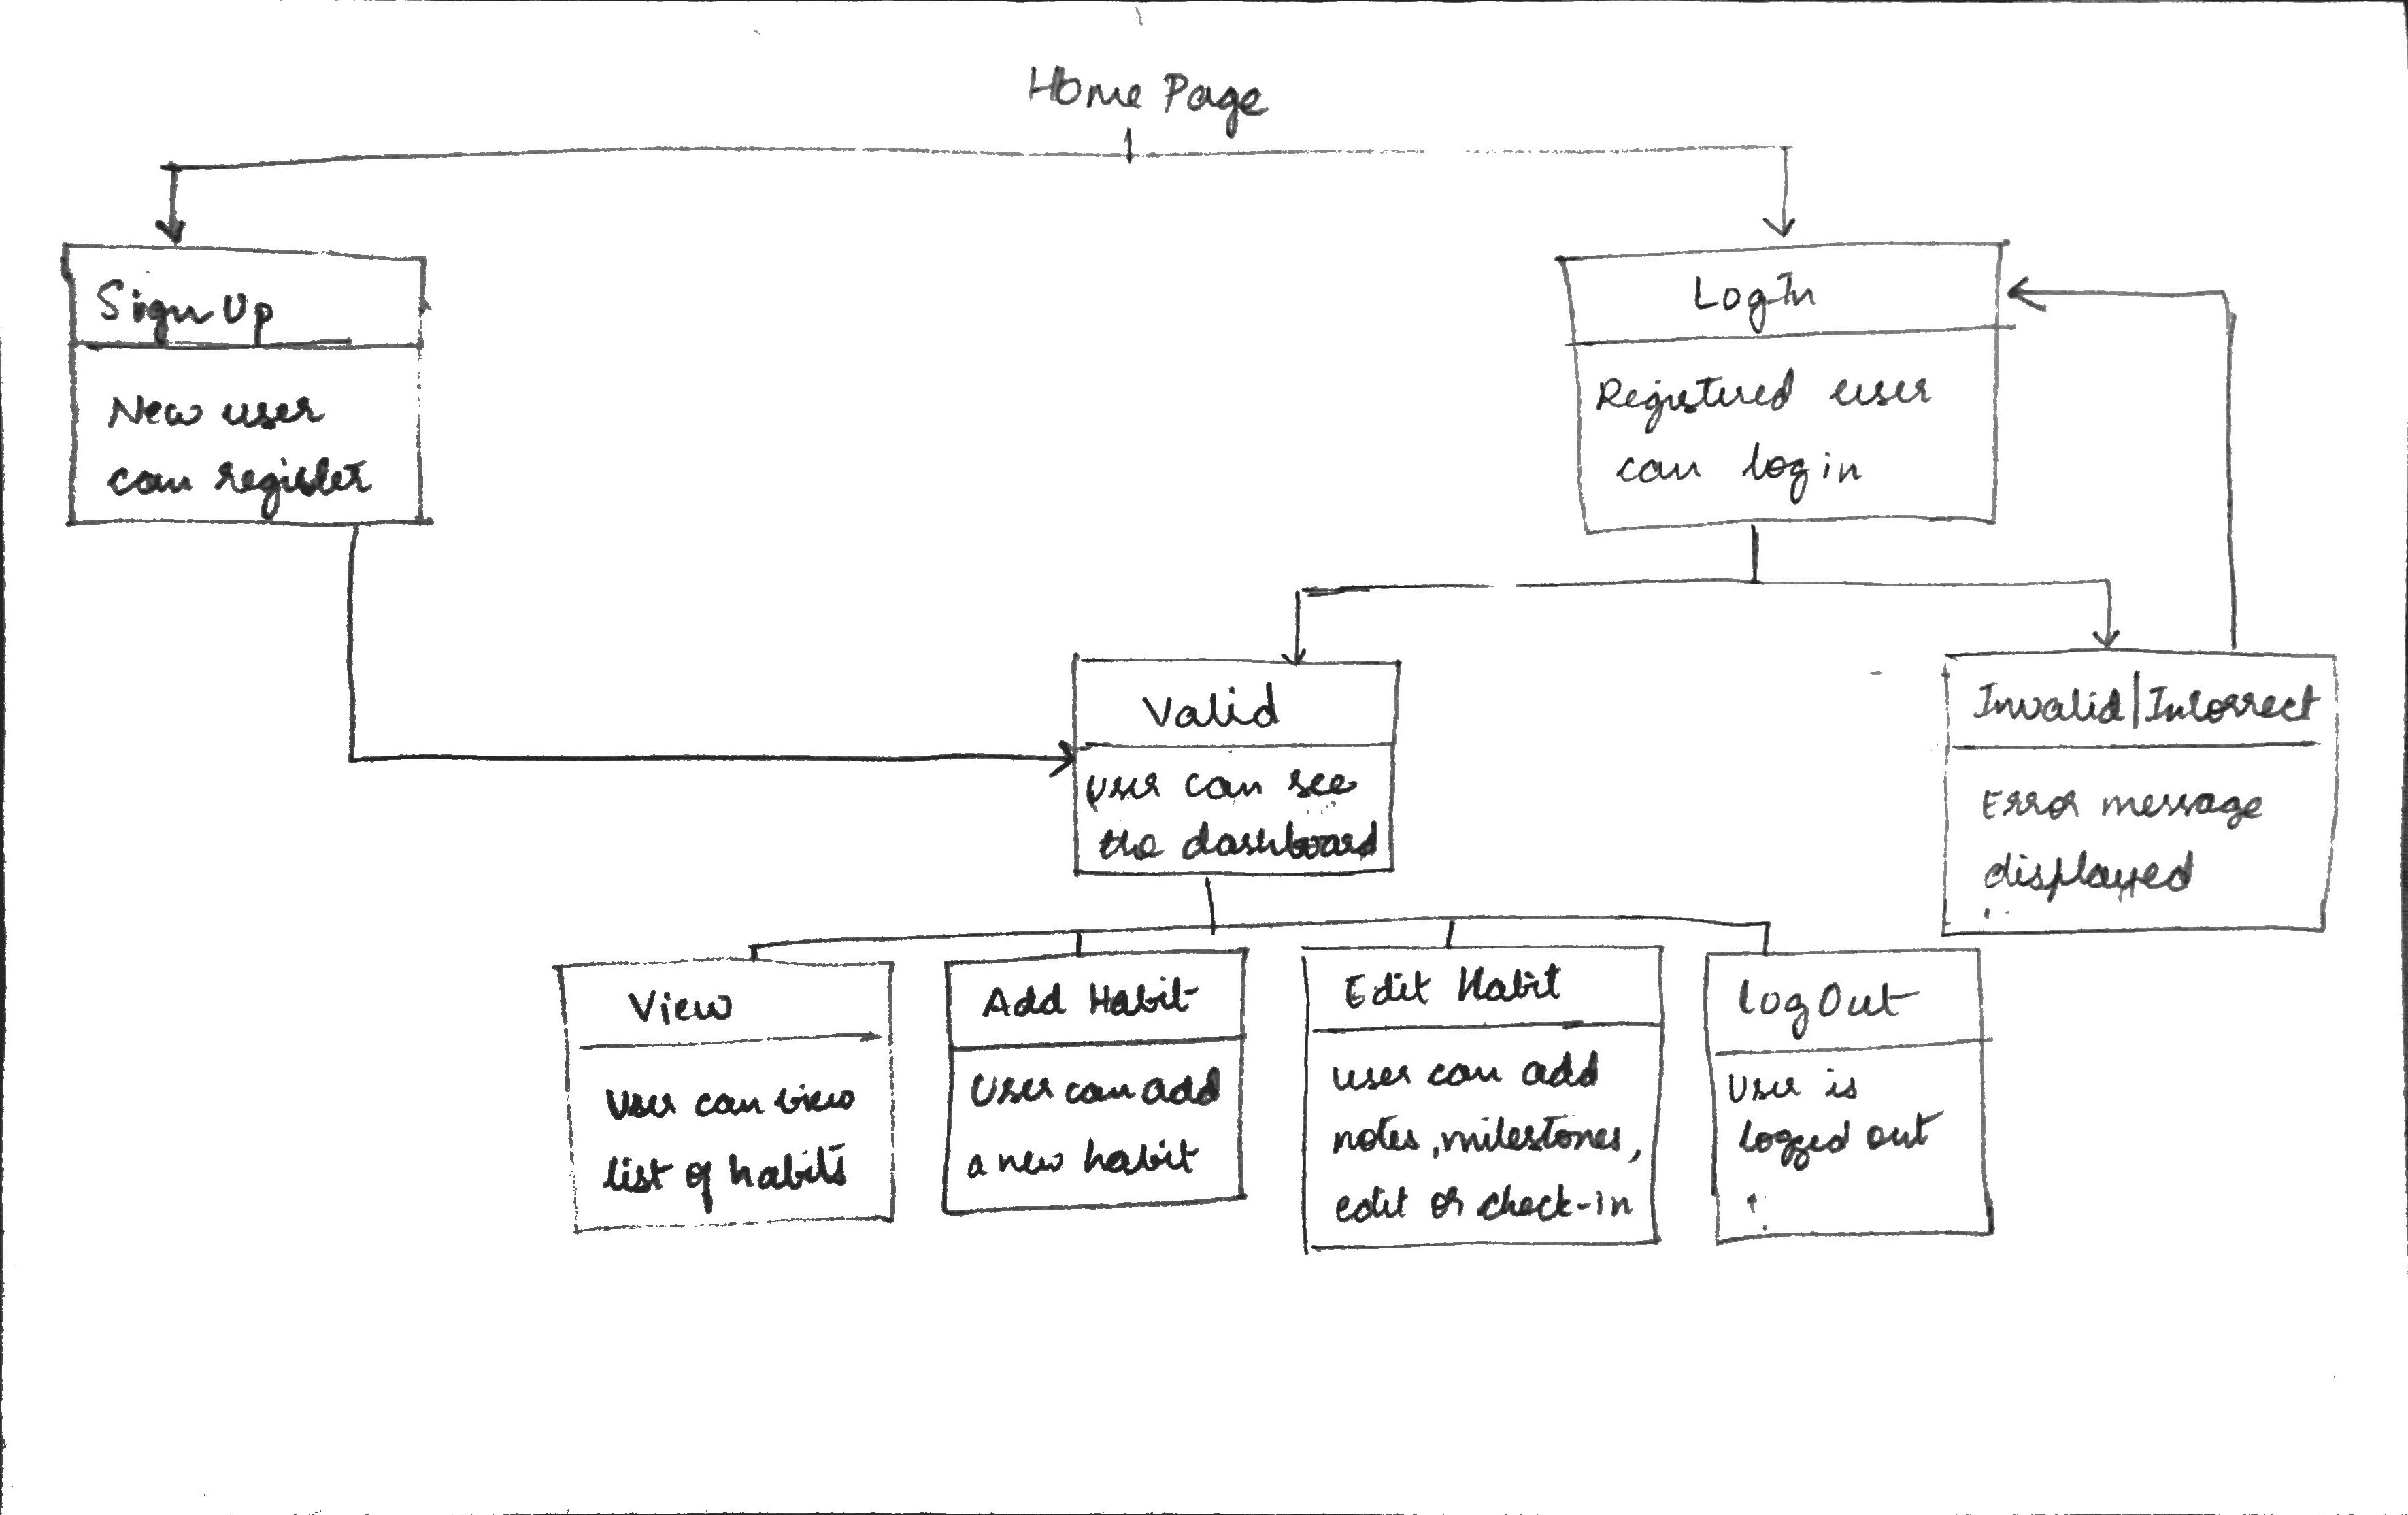 Home Page
Sign Up
New user
can register
LogIn
Registered user
can log in
Valid
User can see
the dashboard
Invalid/Incorrect
Error message
displayed
View
User can view
list of habits
Add Habit
User can add
a new habit
Edit Habit
user can add
notes, milestones,
edit or check-in
LogOut
User is
logged out